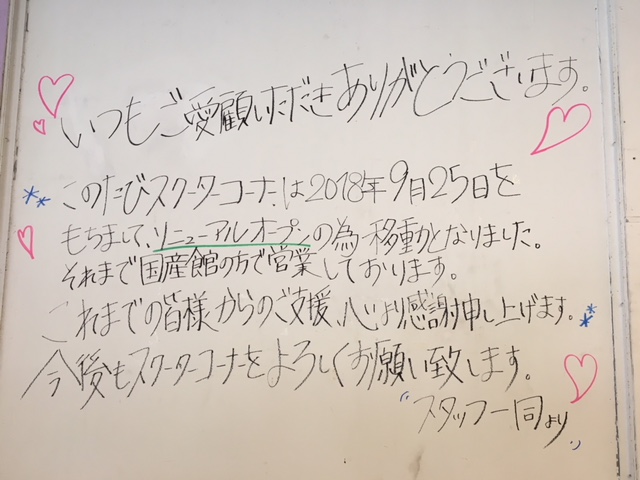 いつもご愛顧いただきありがとうございます。
このたびスクーターコーナーは2018年9月25日を
もちまして、リニューアルオープンの為移動となりました。
それまで国産館の方で営業しております。
これまでの皆様からのご支援、心より感謝申し上げます。
今後もスクーターコーナーをよろしくお願い致します。
〃スタッフ一同より〃